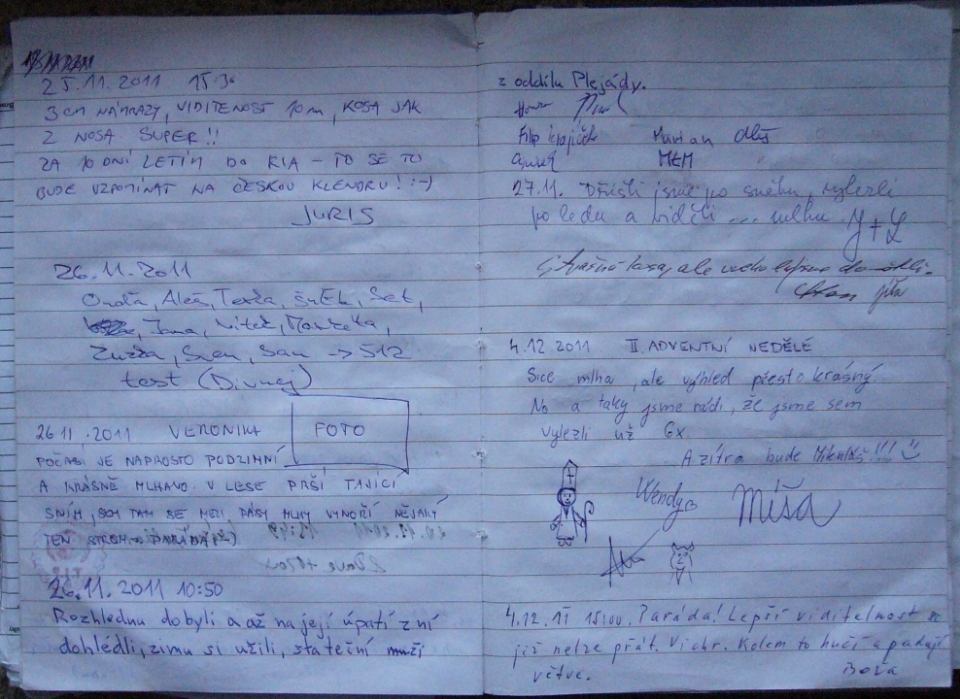 25.11.2011 15:30
3CM NÁMRAZY, VIDITELNOST 10m, KOSA JAK
Z NOSA. SUPER!!
ZA 10 DNÍ LETÍM DO – TO SE TO
BUDE VZPOMÍNAT NA ČESKOU KLENDRU! :-)
JURIS
26.11.2011
Ondra, Aleš, Terka,
Jana, Vítek, Markéta,
Zuzka, Sven, → 512
test (Divnej)
26 11.2011 VERONIKA FOTO
POČASÍ JE NAPROSTO PODZIMNÍ
A KRÁSNĚ MLHAVO. V LESE PRŠÍ TAJÍCÍ
SNÍH, SEM TAM SE MLHY VYNOŘÍ NĚJAKÝ
TEN STROM
26.11.2011 10:50
Rozhlednu dobyli a až na její úpatí z ní
dohlédli, zimu si užili, stateční muži
z oddílu Plejády.
Filip Marian
MEM
27.11. Přišli jsme po sněhu, vylezli
po ledu a viděli ... mlhu. J+L
Strašná kosa, ale
4.12.2011 II. ADVENTNÍ NEDĚLE
Sice mlha, ale výhled přesto krásný.
No a taky jsme rádi, že jsme sem
vylezli už 6x
A zítra bude Mikuláš!!!
Wendy Míša
4.12.11 15:00. Paráda! Lepší viditelnost si
již nelze přát. Vichr. Kolem to hučí a padají
větve. Bořa